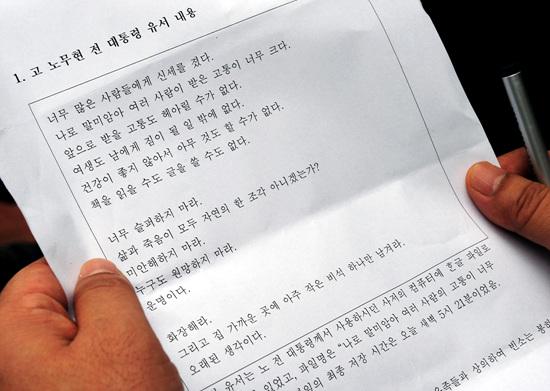 1. 고 노무현 전 대통령 유서 내용
너무 많은 사람들에게 신세를 졌다.
나로 말미암아 여러 사람이 받은 고통이 너무 크다.
앞으로 받을 고통도 헤아릴 수가 없다.
여생도 남에게 짐이 될 일 밖에 없다.
건강이 좋지 않아서 아무 것도 할 수가 없다.
책을 읽을 수도 글을 쓸 수도 없다.
너무 슬퍼하지 마라.
삶과 죽음이 모두 자연의 한 조각 아니겠는가?
미안해하지 마라.
누구도 원망하지 마라.
운명이다.
화장해라.
그리고 집 가까운 곳에 아주 작은 비석 하나만 남겨라.
오래된 생각이다.
유서는 노 전 대통령께서 사용하시던 사저의 컴퓨터에 한글 파일로
있었고, 파일명은 "나로 말미암아 여러 사람의 고통이 너무
최종 저장 시간은 오늘 새벽 5시 21분이었음.
상의하여 빈소는